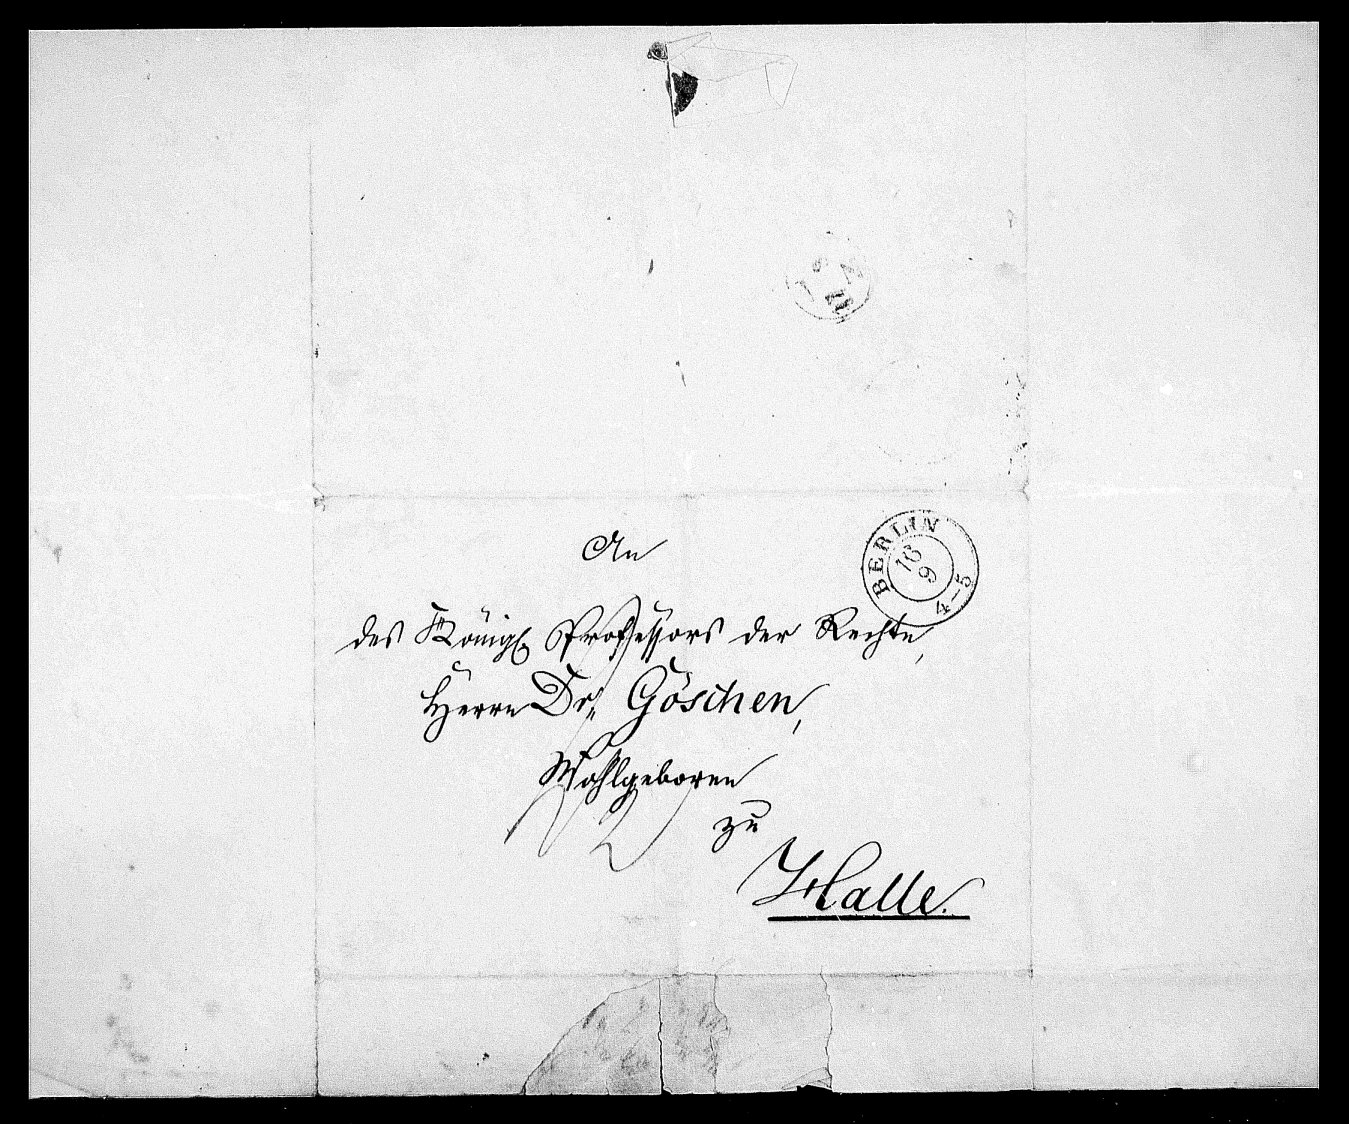 An
des Königl. Professors der Rechte,
Herrn Dr. Göschen,
Wohlgeboren
zu
Halle.
BERLIN
16
9
4–5